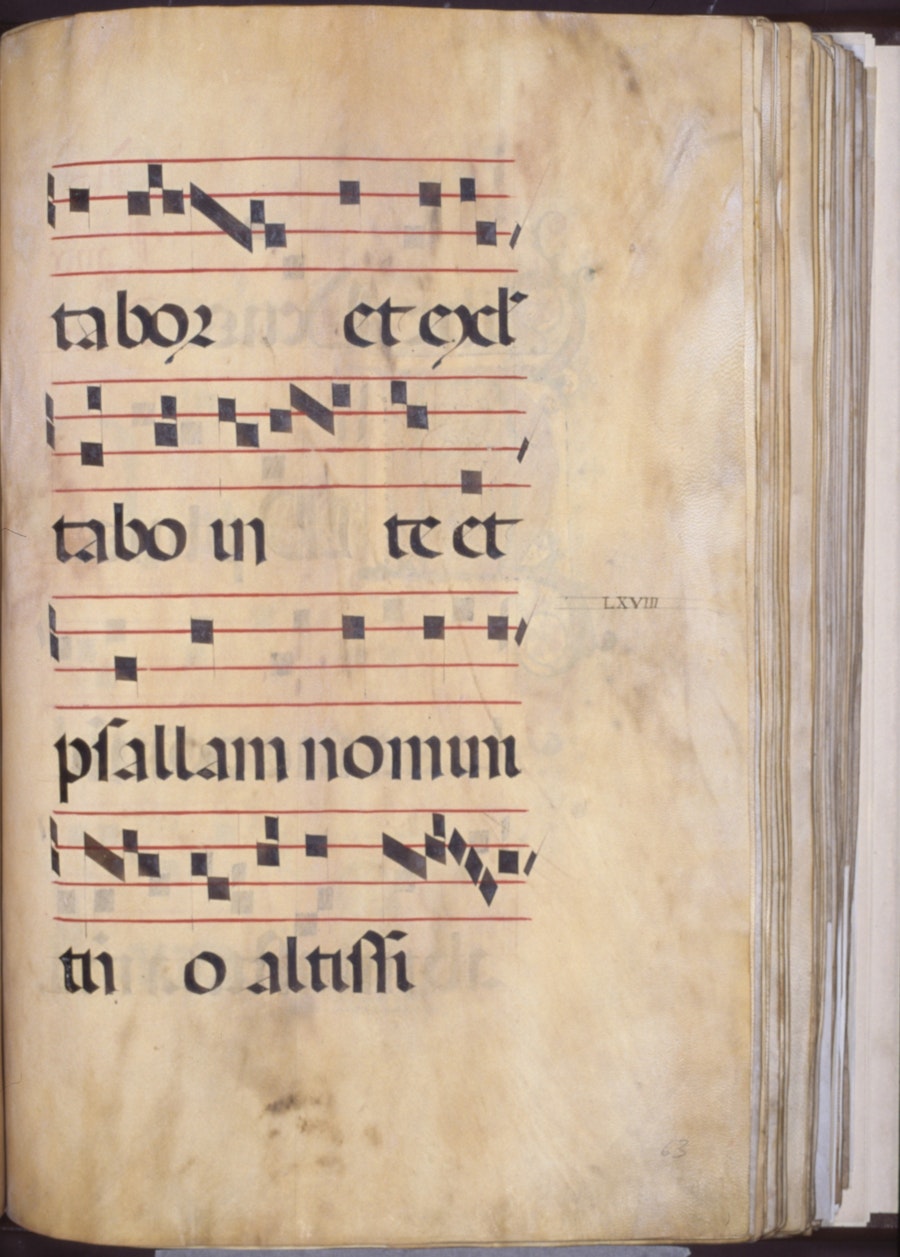 tabor et exul
tabo in te et
psallam nomini
LXVIII
tu o altissi
63